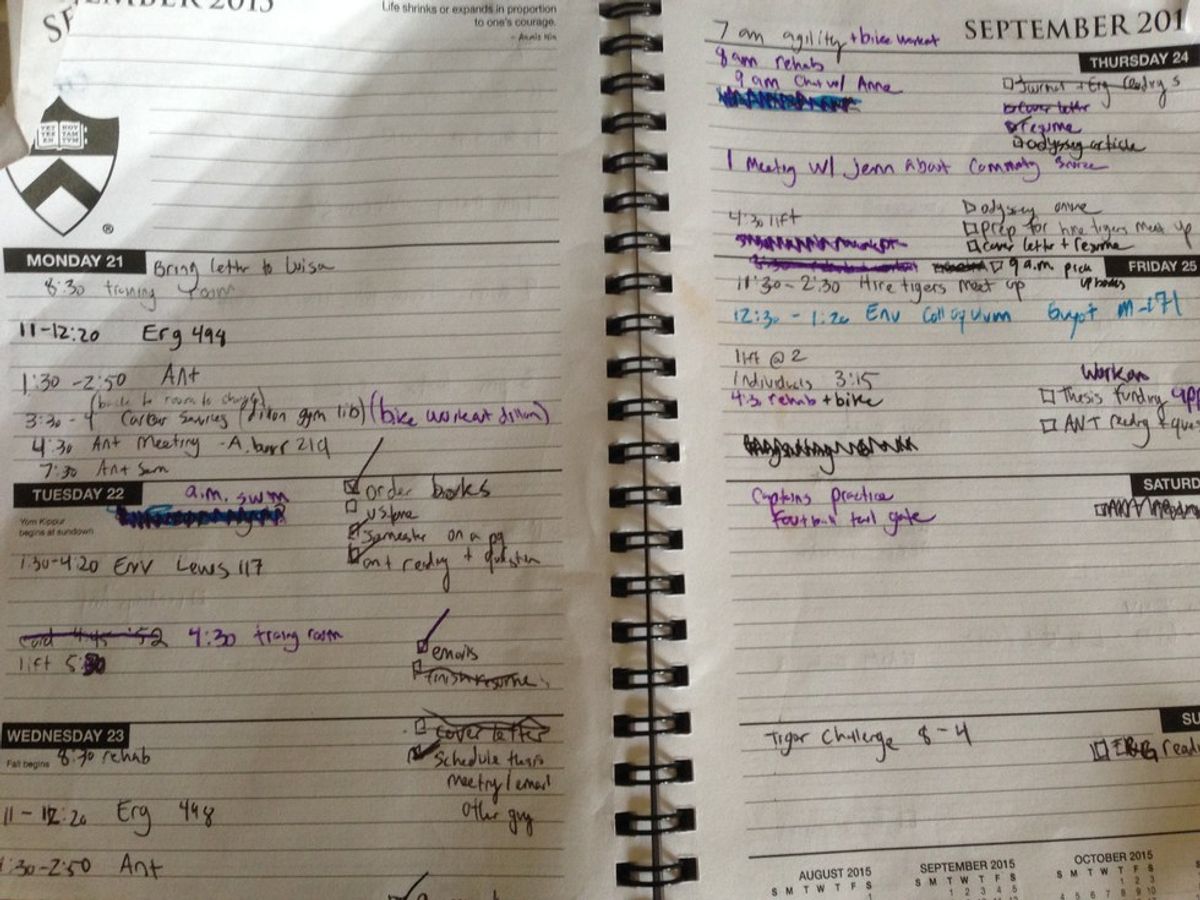 SEPTEMBER 2015
Life shrinks or expands in proportion
to one's courage.
- Anais Nin
VET NOV
TES TAM
EN TVM
®
MONDAY 21
Bring letter to Luisa
8:30 training room
11-12:20 Erg 498
1:30-2:50 Ant
(back to room to change)
3:30-4 Career Services (dillon gym lib) (bike workout dillon)
4:30 Ant Meeting - A. burr 219
7:30 Ant Sem
TUESDAY 22
a.m. swim
Yom Kippur
begins at sundown
order books
semester on a pg
ant reading + question
1:30-4:20 Env Lewis 117
card 4:45 - 52 4:30 training room
lift 5:30
emails
finish resume
WEDNESDAY 23
Fall begins
8:30 rehab
cover letter
schedule thesis
meeting/email
other guy
11-12:20 Erg 498
1:30-2:50 Ant
SEPTEMBER 201
7 am agility + bike workout
8am rehab
9 am Chat w/ Anne
THURSDAY 24
Journal + Erg reading s
cover letter
resume
odyssey article
1 Meeting w/ Jenn About Community Service
4:30 lift
odyssey online
prep for hire tigers meet up
cover letter + resume
9 a.m. pick
up books
FRIDAY 25
11:30-2:30 Hire tigers meet up
12:30-1:20 Env Colloquium Guyot M-171
lift @ 2
individuals 3:15
4:30 rehab + bike
Work on
Thesis funding app
ANT reading + ques
SATURD
Captains practice
Football tail gate
SU
Tiger Challenge 8-4
ERG readi
AUGUST 2015
S M T W T F S
1
SEPTEMBER 2015
S M T W T F S
1 2 3 4 5
OCTOBER 2015
S M T W T F S
1 2 3
4 5 6 7 8 9 10